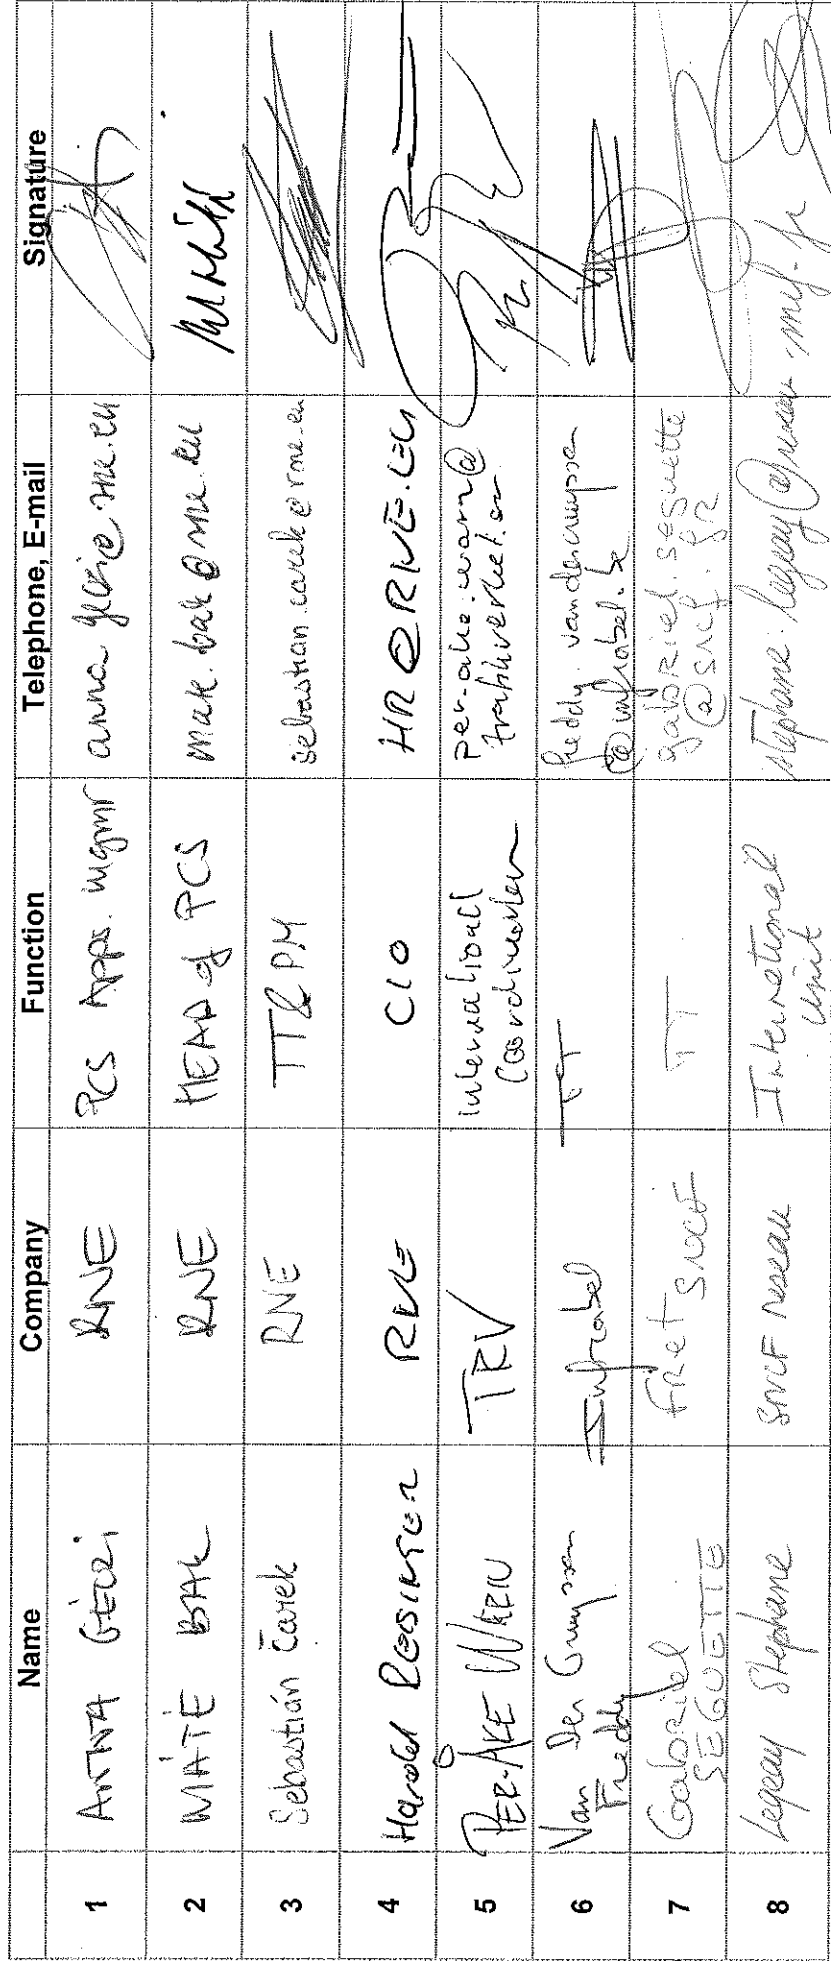 Name Company Function Telephone, E-mail Signature
1 ANNA GÉCZI RNE PCS Apps. mgmr anna.geczi@rne.eu
2 MÁTÉ BAK RNE HEAD of PCS mate.bak@rne.eu
3 Sebastián Čarek RNE TT&PM sebastian.carek@rne.eu
4 Harald REISINGER RNE CIO HR@RNE.EU
5 PER-ÅKE WÄRN TRV international per-ake.warn@
Coordinator trafikverket.se
6 Van Der Cruyssen Infrabel TT freddy.vandercruyssen
Freddy @infrabel.be
7 Gabriel Fret SNCF TT gabriel.seguette
SEGUETTE @sncf.fr
8 Legeay Stephane SNCF reseau International stephane.legeay@reseau.sncf.fr
Unit